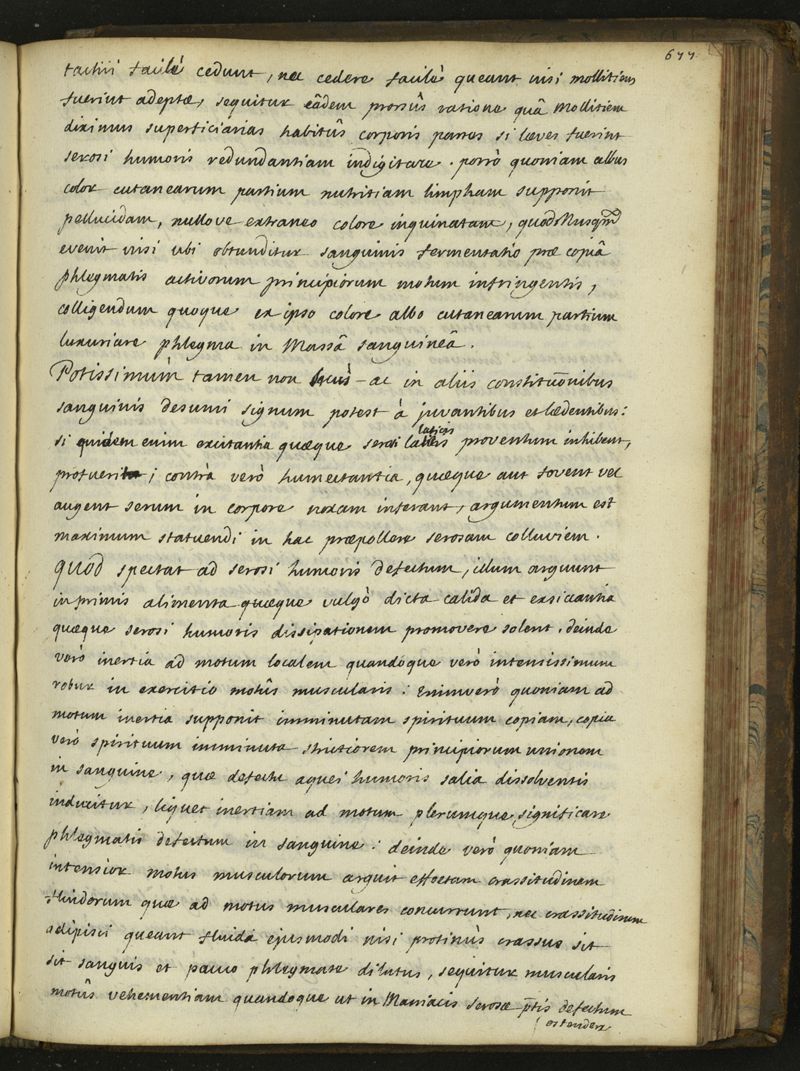 677
tactui facilè cedunt, nec cedere facilè queant nisi mollitiem
fuerint adeptæ, sequitur eâdem prorsûs ratione quâ mollitiem
diximus superficiarias habitûs corporis partes si læves fuerint
serosi humoris redundantiam indigitare. porrò quoniam albus
color cutanearum partium nutritiam limpham supponit
pellucidam, nullove extraneo colore inquinatam, quod
evenit nisi ubi obtunditur sanguinis fermentatio præ copiâ
phlegmatis activorum principiorum motum infringentis,
colligendum quoque ex ipso colore albo cutanearum partium
luxuriare phlegma in Massâ sanguineâ.
Potissimùm tamen non - ac in aliis constitutionibus
sanguinis desumi signum potest à juvantibus et lædentibus:
si quidem enim exsiccantia quæque seri laticis proventum inhibent,
profuerint; contrà verò humectantia, quæque aut fovent vel
augent serum in corpore noxam inferant, argumentum est
maximum statuendi in hac præpollere serosam colluviem.
Quod spectat ad serosi humoris defectum, illum arguunt
inprimis alimenta quæque vulgò dicta calida et exsiccantia
quæque serosi humoris dissipationem promovere solent. deinde
verò inertia ad motum localem quandóque verò intensissimum
robur in exercitio motûs muscularis: Enimverò quoniam ad
motum inertia supponit imminutam spirituum copiam, copia
verò spirituum imminuta strictiorem principiorum unionem
in sanguine, quæ defectu aquei humoris salia dissolventis
inducitur, liquet inertiam ad motum plerumque significare
phlegmatis defectum in sanguine: deinde verò quoniam
intensior motus musculorum arguit effœtam crassitudinem
fluidorum quæ ad motus musculares concurrunt, nec crassitudinem
adipisci queant fluida ejusmodi nisi protinùs crassus sit
sit sanguis et pauco phlegmate dilutus, sequitur muscularis
motûs vehementiam quandoque ut in Maniacis serosæ ptis defectum
ostendere